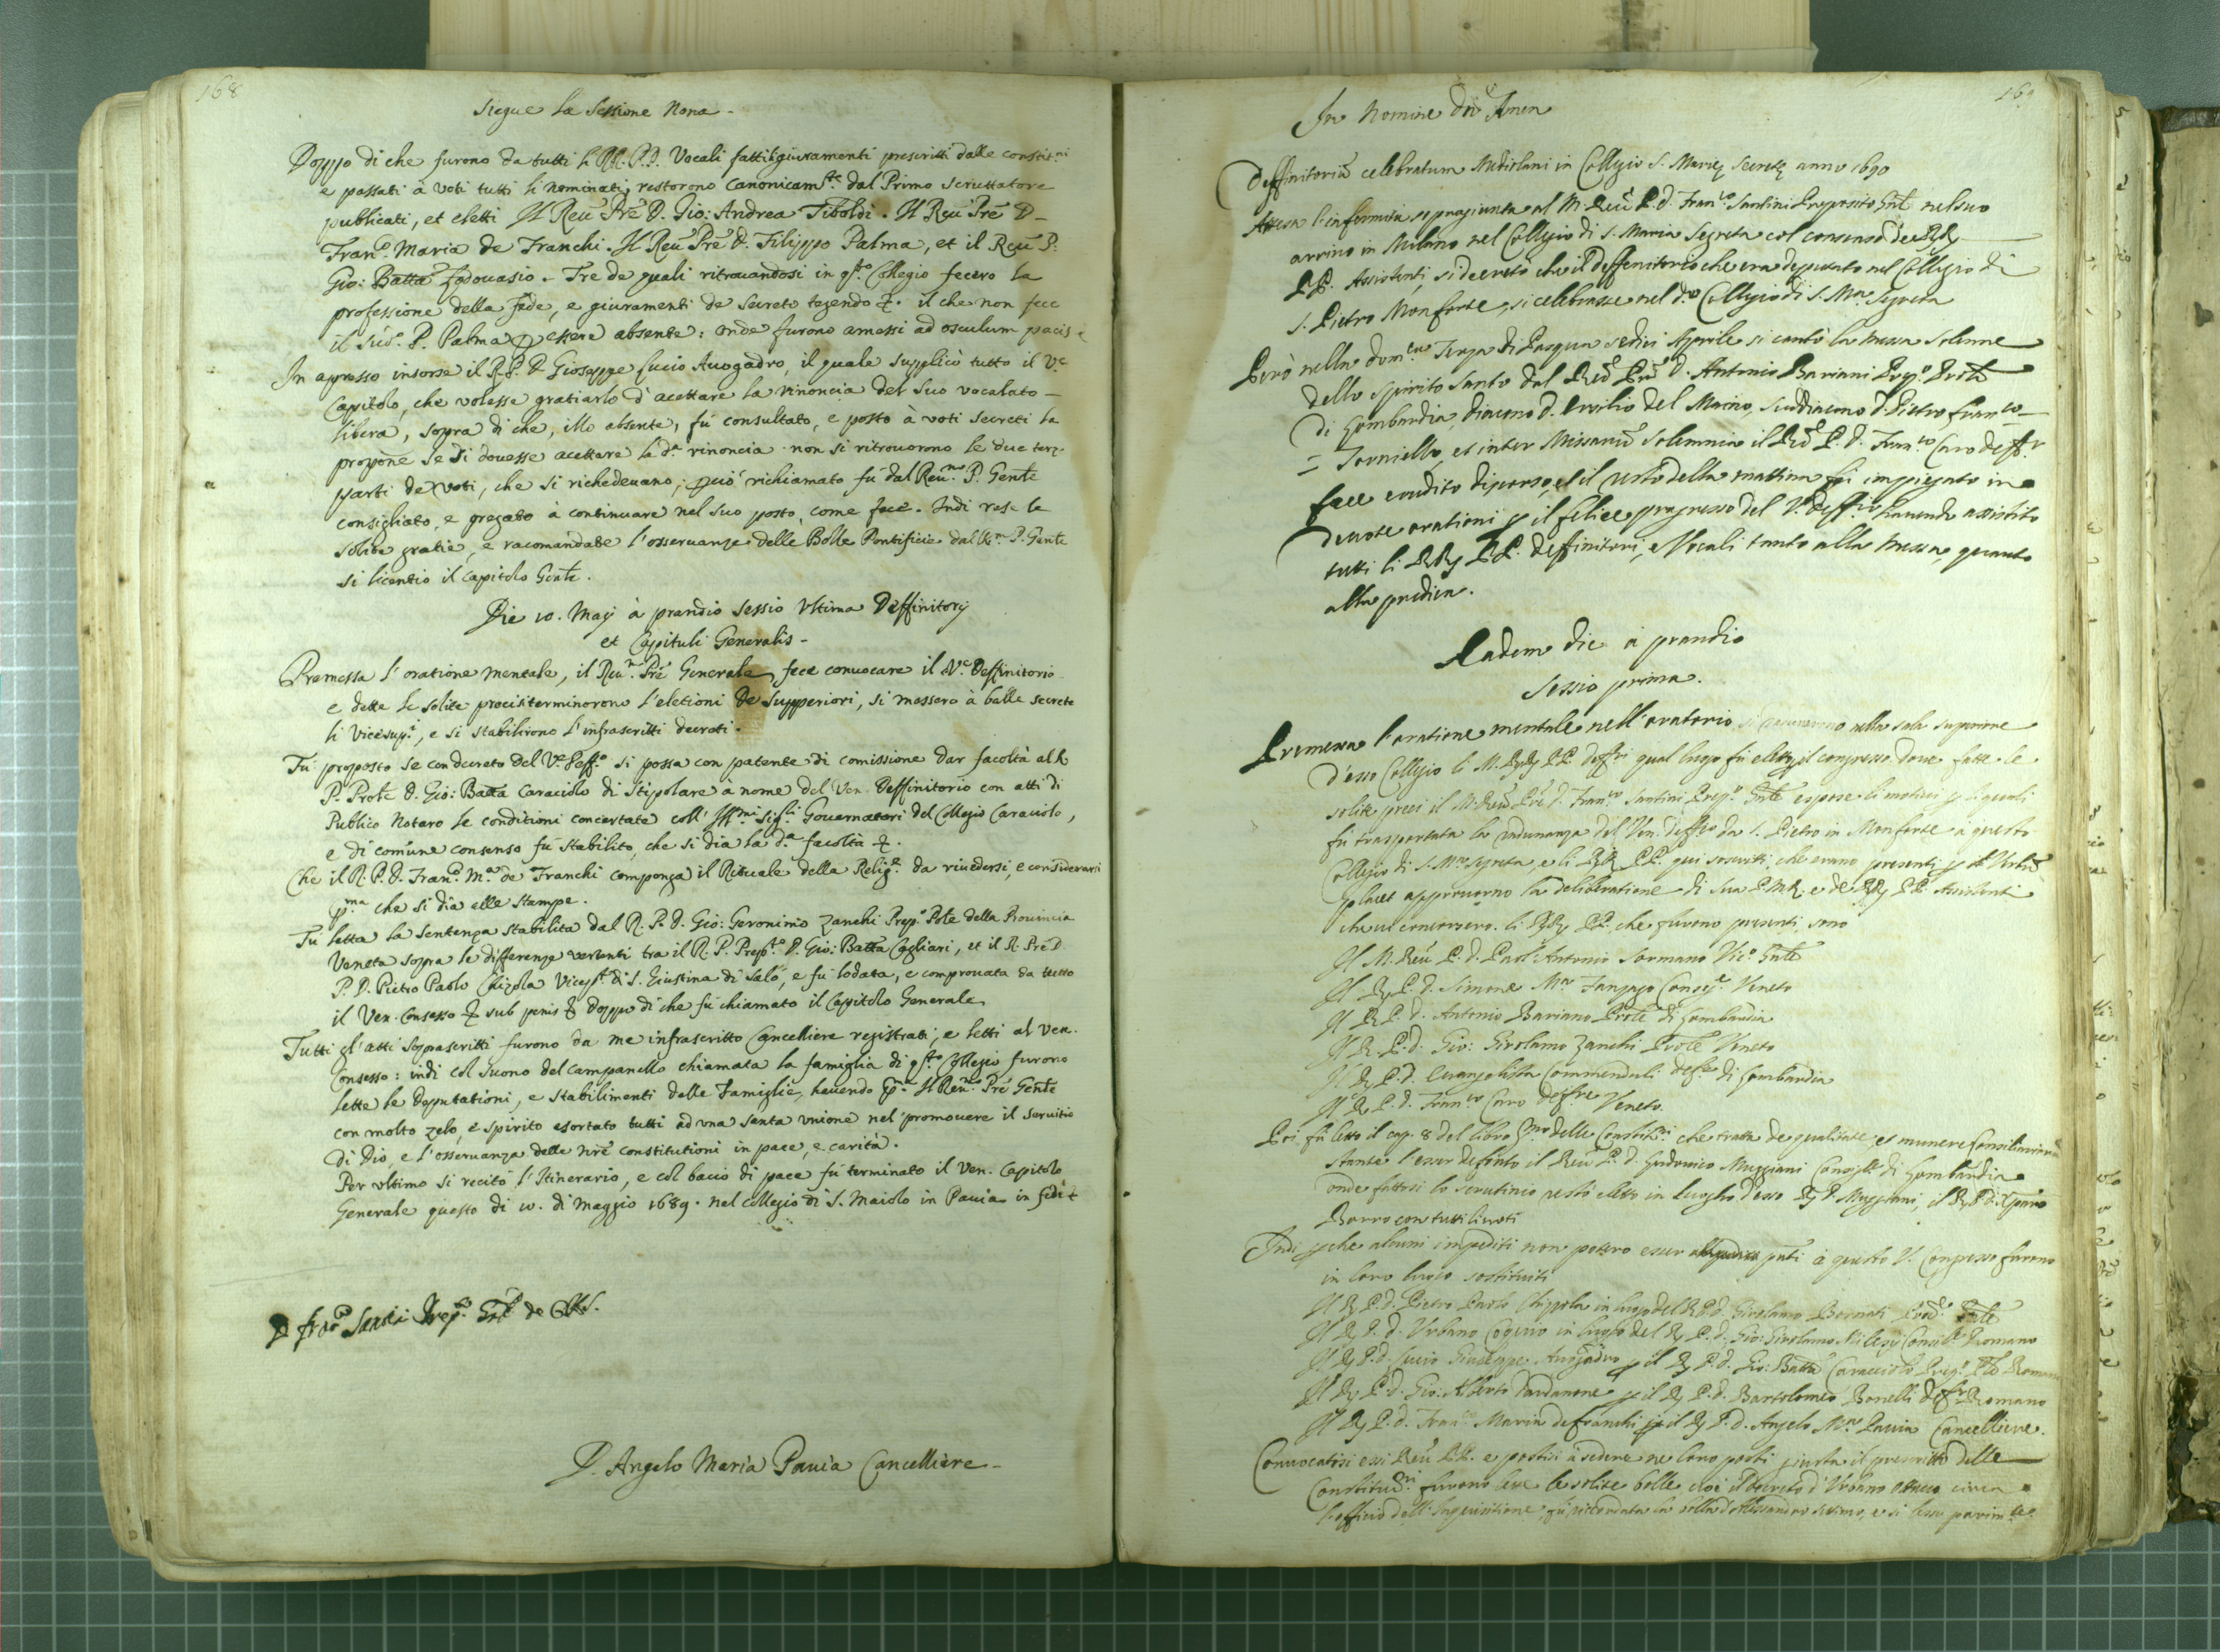 168
Siegue la Sessione Nona -
Doppo di che furono da tutti li RR. P.P. Vocali fatti giuramenti prescritti dalle constit.ni
e passati à voti tutti li nominati, restorono canonicam.te dal Primo scruttatore
publicati, et eletti Il Reu. Prē D. Gio: Andrea Tiboldi. Il Reu. Prē D -
Fran.co Maria de Franchi. Il Reu. Prē D. Filippo Palma, et il Reu. P.
Gio: Batta . Tre de quali ritrouandosi in q.sto Collegio fecero la
professione della fede, e giuramenti de secreto tegendo &. il che non fece
il sud.o P. Palma p essere absente: onde furono amessi ad osculum pacis
In apresso insorse il R. P. D. Gioseppe Lucio Auogadro, il quale supplicò tutto il V.e
Capitolo, che volesse gratiarlo d'acettare la rinoncia del suo vocalato -
libera, sopra di che, illo absente, fù consultato, e posto à voti secreti la
propōne se si douesse acettare la d.a rinoncia non si ritrouorono le due terze
parti de voti, che si richedeuano; pciò richiamato fù dal Reu.mo P. Gen̄le
consigliato, e pregato à continuare nel suo posto, come fece. Indi rese le
solite gratie, e racomandate l'osseruanze delle Bolle Pontificie dal R.mo P. Gen̄le
si licentio il Capitolo Gen̄le.
Die 10. Maij à prandio Sessio Vltima Deffinitorij
et Capituli Generalis -
Premessa l'oratione mentale, il Reu.mo Prē Generale fece conuocare il V.e Deffinitorio
e dette le solite preci si terminorono l'eletioni de Supperiori, si massero à balle secrete
li Vicesup.i, e si stabilirono l'infrascritti decreti.
Fù proposto se con decreto del V.e Deff.o si possa con patente di comissione dar facoltà al R.
P. Prōle D. Gio: Batta Caraciolo di stipolare à nome del Ven. Deffinitorio con atti di
Publico Notaro le conditioni concertate coll' Ill.mi Sig.ri Gouernatori del Collegio Caraciolo,
e di comune consenso fù stabilito, che si dia la d.a facoltà &.
Che il R. P. D. Fran.co M.a de Franchi componga il Rituale della Relig.e da riuedersi, e considerarsi
p.ma che si dia alle stampe.
Fù letta la sentenza stabilita dal R. P. D. Gio: Geronimo Zanchi Prep.o Prōle della Prouincia
Veneta sopra le differenze vertenti tra il R. P. Prep.to D. Gio: Batta Cagliari, et il R. Prē D.
P. D. Pietro Paolo Chizola Vicep.to di S. Giustina di Salò, e fù lodata, e comprouata da tutto
il Ven. Consesso & sub penis & doppo di che fù chiamato il Capitolo Generale
Tutti gl'atti soprascritti furono da me infrascritto Cancelliere registrati, e letti al Ven.
Consesso: indi col suono del campanello chiamata la famiglia di q.sto Collegio furono
lette le deputationi, e stabilimenti delle Famiglie, hauendo p.ma Il Reu.mo Prē Gen̄le
con molto zelo, e spirito esortato tutti ad vna santa vnione nel promouere il seruitio
di Dio, e l'osseruanza delle nrē constitutioni in pace, e carità.
Per vltimo si recitò l'Itinerario, e col bacio di pace fù terminato il Ven. Capitolo
Generale questo dì 10. di Maggio 1689. nel collegio di S. Maiolo in Pauia in fede
D. Angelo Maria Pauia Cancelliere -
169
In Nomine Dn̄i Amen
Deffinitoriū celebratum Mediolani in Collegio S. Marię Secretę anno 1690
Attesa l'infermità sopragiunta al M. Reu. P. D. Fran.co Santini Preposito Gn̄le nel suo
arriuo in Milano nel Collegio di S. Maria Segreta col consenso de RR.
PP. Assistenti, si decretò che il deffenitorio che era deputato nel Collegio di
S. Pietro Monforte, si celebrasse nel d.o Collegio di S. M.a Segreta
Però nella dom.ca terza di Pasqua sedici Aprile si cantò la messa solenne
dello spirito Santo dal Reu. Prē D. Antonio Bariani Prep.o Prōle
di Lombardia, diacono D. Ersilio del Maino, suddiacono D. Pietro Fran.co
Torniello, et inter Missarū solemnia il Reu. P. D. Fran.co Caro deff.r
fece erudito discorso, et il resto della mattina fù impiegato in
deuote orationi p il felice progresso del V. deff.rio hauendo assistito
tutti li RR. PP. Deffinitori, e Vocali tanto alla messa, quanto
alla predica.
Eadem die à prandio
Sessio prima.
Premessa l'oratione mentale nell'oratorio si radunorono nella sala superiore
d'esso Collegio li M. RR. PP. Deff.ri qual luogo fù eletto p il congresso doue fatte le
solite preci il M. Reu. Prē D. Fran.co Santini Prep.o Gn̄le espose li motiui p li quali
fù trasportata la radunanza del Ven. deff.rio da S. Pietro in Monforte à questo
Collegio di S. M.a Segreta, e li RR. PP. qui soscritti, che erano presenti p
placet approuorno la deliberatione di Sua P. M. R. e de RR. PP. Assistenti
che ui concorsero. li RR. PP. che furono presenti sono
Il M. Reu. P. D. Paol'Antonio Sormano Vic.o Gn̄le
Il R. P. D. Simone M.a Fanzago Consig.re Veneto
Il R. P. D. Antonio Bariano Prōle di Lombardia
Il R. P. D. Gio: Girolamo Zanchi Prōle Veneto
Il R. P. D. Euangelista Commenduli deff.re di Lombardia
Il R. P. D. Fran.co Caro deff.re Veneto
Poi fù letto il cap. 8 del libro p.mo delle Constit.ni che tratta de qualitate et munere Consiliariorū
stante l'esser defonto il Reu. P. D. Lodouico Muggiani Consig.re di Lombardia
onde fattosi lo scrutinio restò eletto in luogho d'esso R. P. Muggiani, il R. P. D.
Barro con tutti li voti
Indi p che alcuni impediti non potero esser pn̄ti à questo V. Congresso furono
in loro luogo sostituiti
Il R. P. D. Pietro Paolo Chizzola in luogo del R. P. D. Girolamo Bernati
Il R. P. D. Vrbano in luogo del R. P. D. Gio: Girolamo Consig.re Romano
Il R. P. D. Lucio Giuseppe Auogadro p il R. P. D. Gio: Batta Caracciolo Prep.o Prōle Romano
Il R. P. D. Gio: Alberto Dardanone p il R. P. D. Bartolomeo Bonelli deff.re Romano
Il R. P. D. Fran.co Maria de Franchi p il R. P. D. Angelo M.a Pauia Cancelliere.
Conuocatisi essi Reu. PP. e postisi à sedere ne loro posti giusta il prescritto delle
Constitut.ni furono lette le solite bolle cioè il decreto d'Vrbano ottauo circa
l'officio dell'Inquisitione, fù ricordata la bolla d'Alessandro settimo, e si lesse parim.te